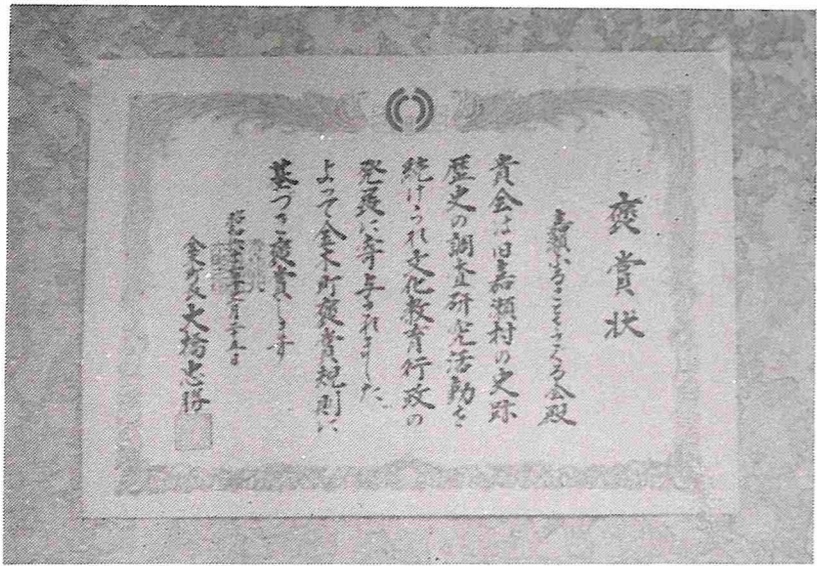 褒賞状
嘉瀬ふるさとをさぐる会殿
貴会は旧嘉瀬村の史跡
歴史の調査研究活動を
続けられ文化教育行政の
発展に寄与されました
よって金木町褒賞規則に
基づき褒賞します
昭和六十 年 月 日
金木町長 大橋忠勝